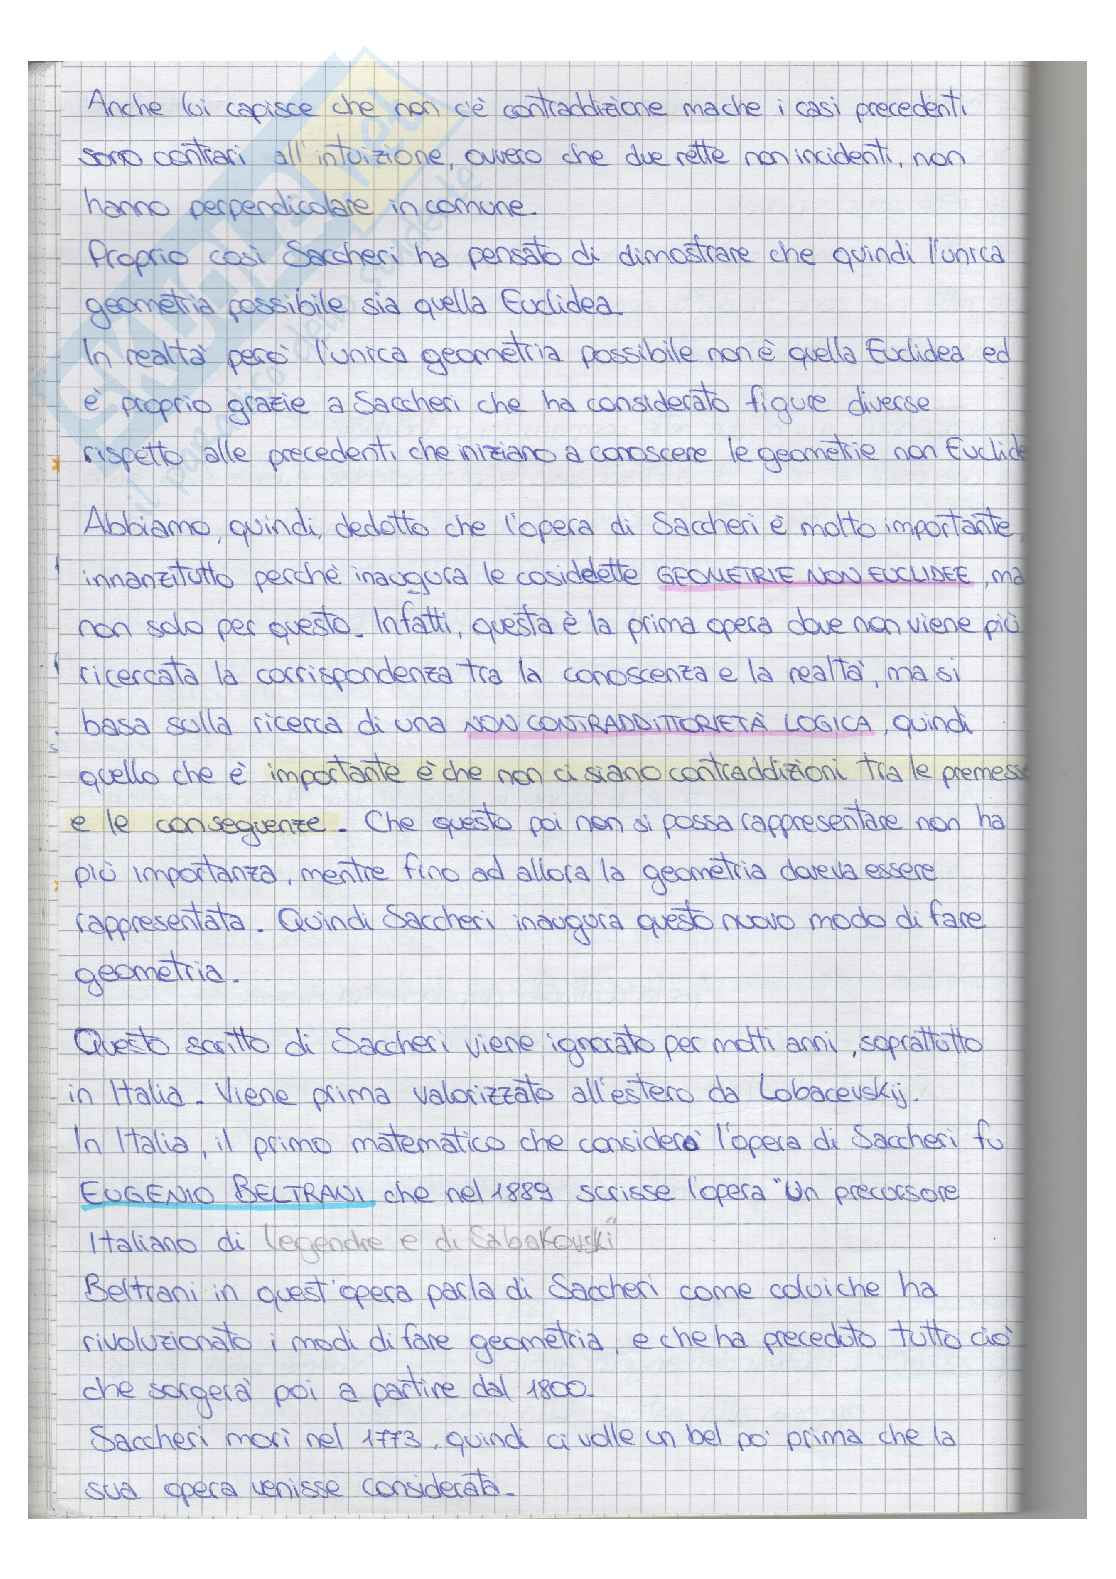 Anche lui capisce che non c'è contraddizione ma che i casi precedenti
sono contrari all'intuizione, ovvero che due rette non incidenti, non
hanno perpendicolare in comune.
Proprio così Saccheri ha pensato di dimostrare che quindi l'unica
geometria possibile sia quella Euclidea.
In realtà però l'unica geometria possibile non è quella Euclidea ed
è proprio grazie a Saccheri che ha considerato figure diverse
rispetto alle precedenti che iniziano a conoscere le geometrie non Euclide
Abbiamo, quindi, dedotto che l'opera di Saccheri è molto importante,
innanzitutto perché inaugura le cosidette GEOMETRIE NON EUCLIDEE, ma
non solo per questo. Infatti, questa è la prima opera dove non viene più
ricercata la corrispondenza tra la conoscenza e la realtà, ma si
basa sulla ricerca di una NON CONTRADDITTORIETÀ LOGICA, quindi
quello che è importante è che non ci siano contraddizioni tra le premess
e le conseguenze. Che questo poi non si possa rappresentare non ha
più importanza, mentre fino ad allora la geometria doveva essere
rappresentata. Quindi Saccheri inaugura questo nuovo modo di fare
geometria.
Questo scritto di Saccheri viene ignorato per molti anni, soprattutto
in Italia. Viene prima valorizzato all'estero da Lobacevskij.
In Italia, il primo matematico che considerò l'opera di Saccheri fu
EUGENIO BELTRANI che nel 1889 scrisse l'opera "Un precorsore
Italiano di Legendre e di Sabokovski"
Beltrani in quest'opera parla di Saccheri come colui che ha
rivoluzionato i modi di fare geometria, e che ha preceduto tutto ciò
che sorgerà poi a partire dal 1800.
Saccheri morì nel 1773, quindi ci volle un bel po' prima che la
sua opera venisse considerata.